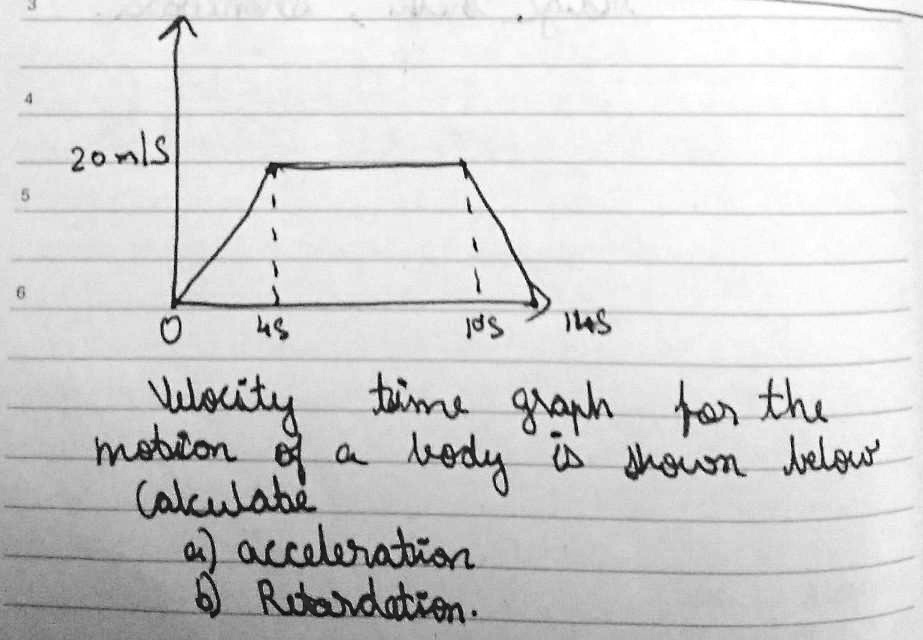 3
4
20 m/S
5
6
0 4S 10S 14S
Velocity time graph for the
motion of a body is shown below
Calculate
a) acceleration
b) Retardation.